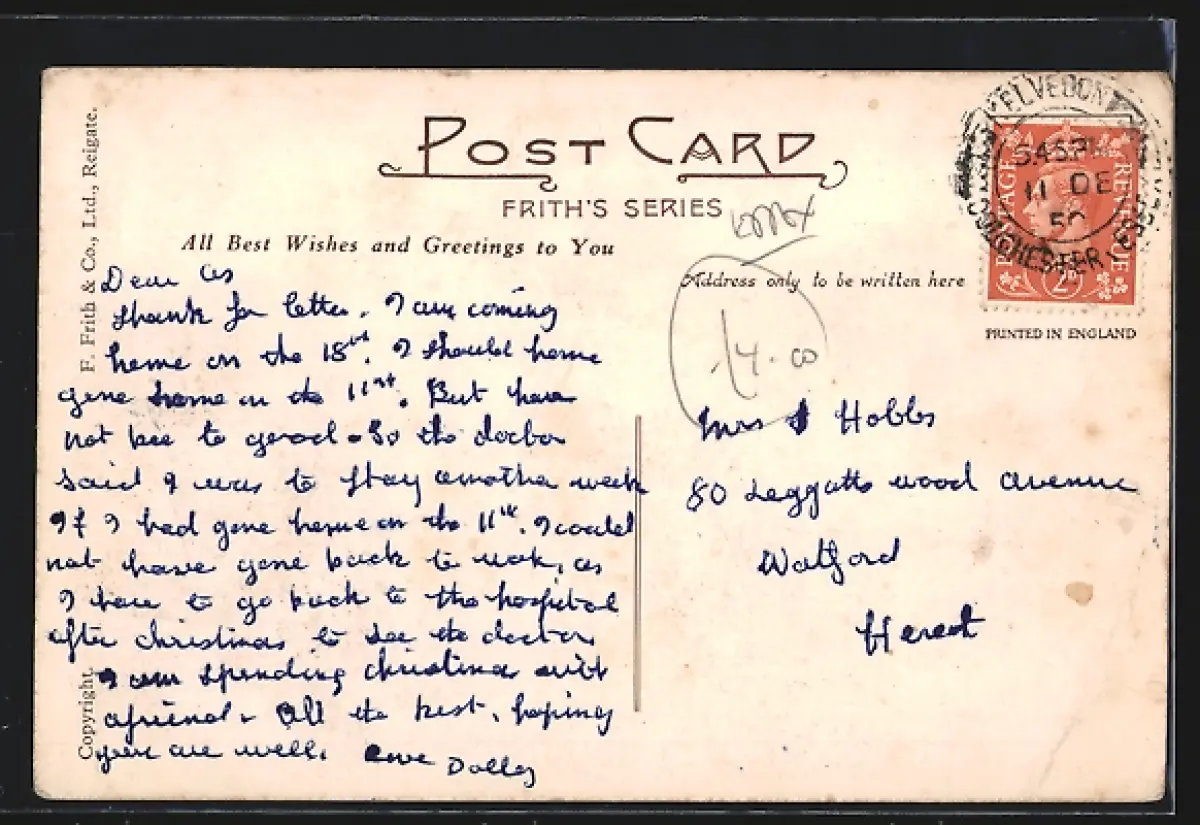 POST CARD
FRITH'S SERIES
All Best Wishes and Greetings to You
Address only to be written here
KELVEDON
5.45 PM
11 DE
50
COLCHESTER ESSEX
POSTAGE REVENUE
2D
PRINTED IN ENGLAND
F. Frith & Co., Ltd., Reigate.
Copyright.
Dear
thank for letter. I am coming
home on the 18th. I should have
gone home on the 11th. But have
not bee to good. So the doctor
said I was to stay another week
If I had gone home on the 11th. I could
not have gone back to work, as
I have to go back to the hospital
after christmas to see the doctor
I am spending christmas with
a friend. All the best, hoping
you are well. love Dolley
14.00
Mrs Hobbs
80 Leggatts wood avenue
Watford